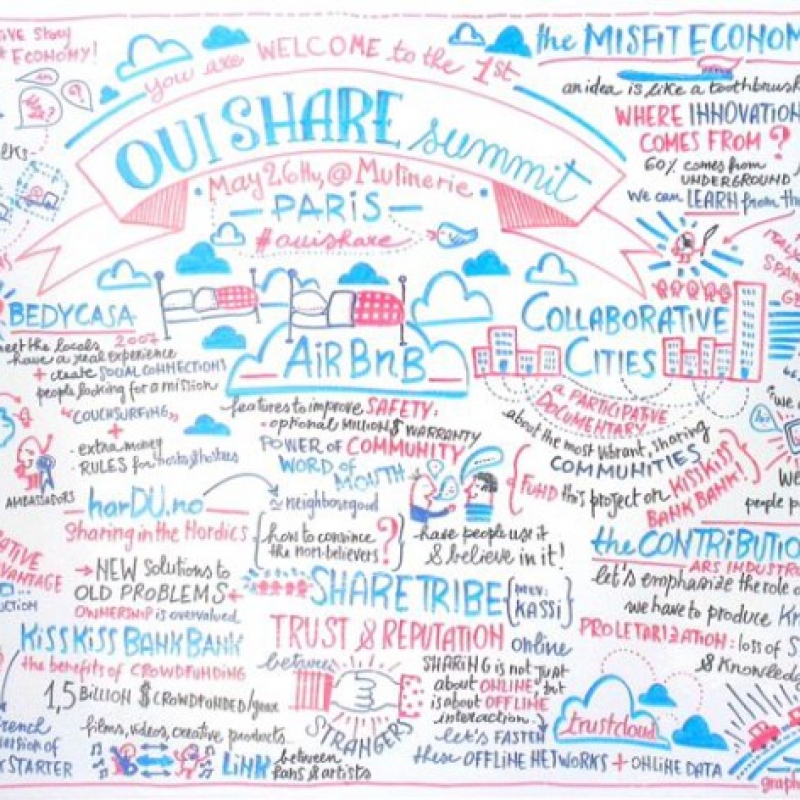 you are WELCOME to the 1st
OUI SHARE summit
May 26th, @ Mutinerie
PARIS
#ouishare
ECONOMY!
the MISFIT ECONOM
an idea is like a toothbrush
WHERE INNOVATION
COMES FROM?
60% comes from
UNDERGROUND
we can LEARN from th
BEDYCASA
meet the locals 2007
have a real experience
+ create SOCIAL CONNECTIONS
people looking for a mission
"COUCHSURFING"
+
- extra money
- RULES for hosts & hostees
AMBASSADORS
AiRBnB
features to improve SAFETY:
- optional MILLION $ WARRANTY
POWER of COMMUNITY
WORD of
MOUTH
≃ neighborgood
how to convince
the non-believers?
have people use it
& believe in it!
COLLABORATIVE
CITIES
a PARTICIPATIVE
DOCUMENTARY
about the most vibrant, sharing
COMMUNITIES
FUND this project on KISSKISS
BANK BANK!
people p
harDU.no
Sharing in the Nordics
→ NEW solutions to
OLD PROBLEMS
OWNERSHIP is overvalued
SHARETRIBE
PREV:
KASSI
TRUST & REPUTATION online
between
STRANGERS
SHARING is not just
about ONLINE, but
is about OFFLINE
interaction.
let's FASTEN
these OFFLINE NETWORKS + ONLINE DATA
trustcloud
the CONTRIBUTIO
ARS INDUSTR
let's emphasize the role o
we have to produce Kn
PROLETARIZATION: loss of S
& Knowled
KISSKISS BANKBANK
the benefits of CROWDFUNDING
1,5 BILLION $ CROWDFUNDED/year
films, videos, creative products
LINK between
fans & artists
french
version of
KSTARTER
graph